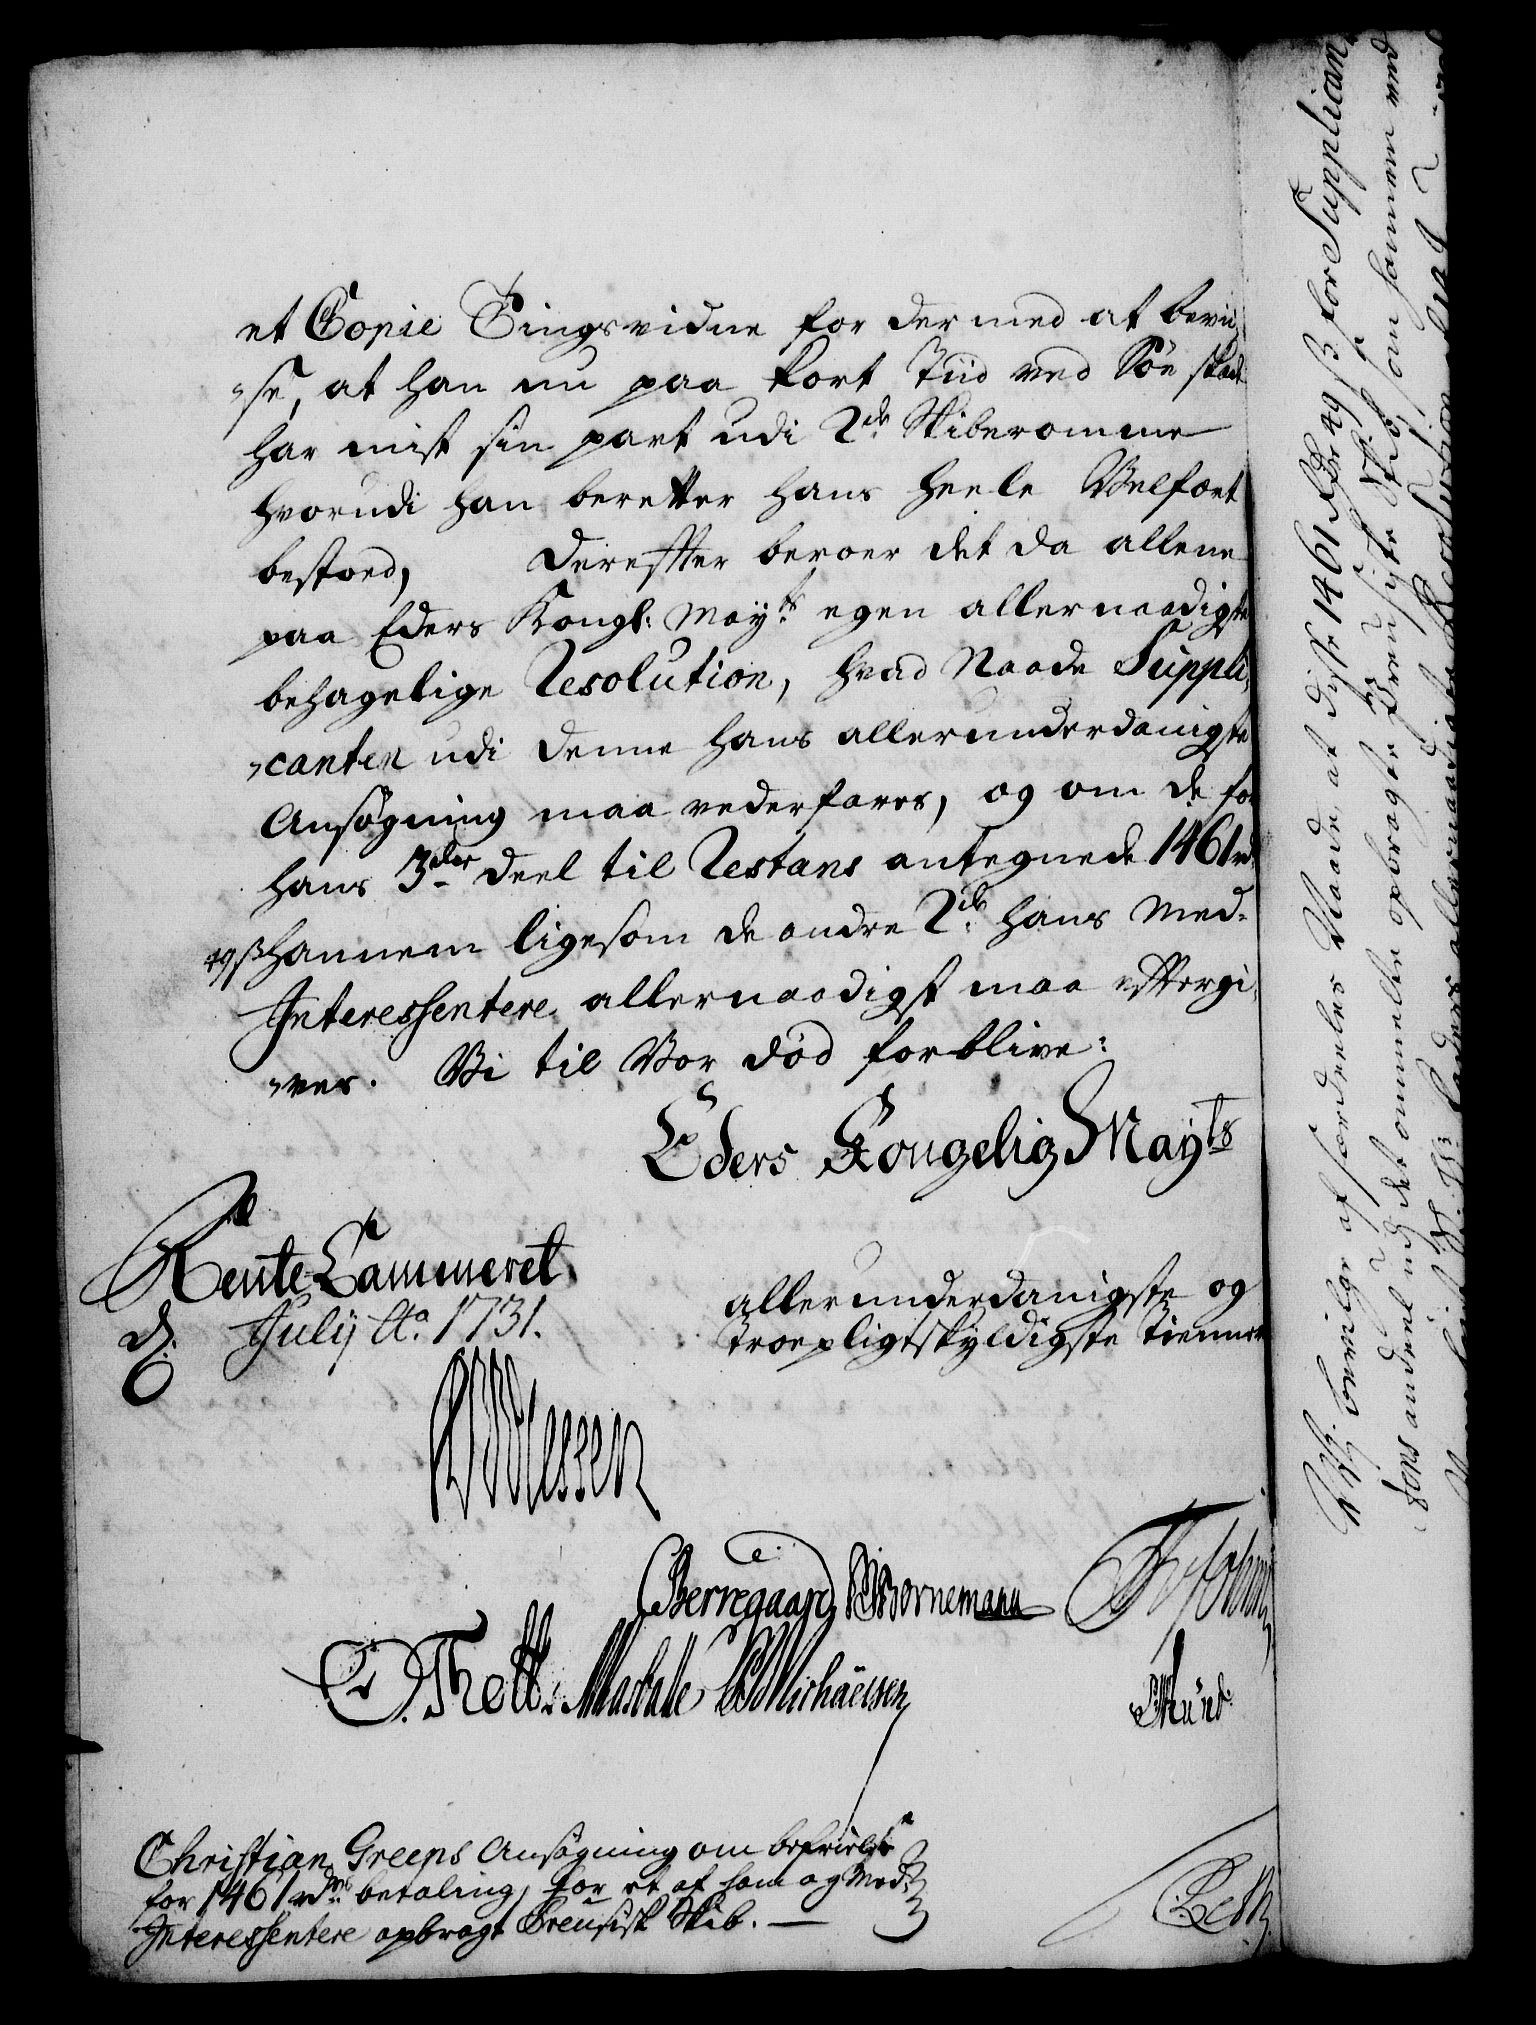 et Copie Tingsvidne for dermed at bevii,
,se, at han nu paa kort Tiid ved Söe skade
har mist sin part udi 2de Skiberomme
hvorudi han beretter hans heele Velfært
bestoed, Derefter beroer det da allene
paa Eders Kongl: Mayts egen allernaadigste
behagelige Resolution, hvad Naade Suppli,
,canten udi denne hans allerunderdanigste
Ansögning maa vederfares, og om de for
hans 3die deel til Restans antegnede 1461 rd
49 ß hannem ligesom de andre 2de hans Med-
Interessentere allernaadigst maa eftergi,
,ves. Vi til Vor död forblive:
Eders Kongelig Mayts
Rente Cammeret
d. July Ao. 1731.
allerunderdanigste og
troepligtskyldigste Tienere
Berregaard Bornemann
O. Thott. Michaelsen
Christian Greeps Ansögning om befrielse
for 1461 rdrs betaling, for et af ham og Med-
Interessentere opbragt Preusisk Skib.
Vj bevilge af særdeeles Naade, at disse 1461 rdr 49 ß for Supplican,
,tens andeel udj det ommelte opbragte Preusiske Skib, kan hannem ved
Eders allernaadigste Resolution